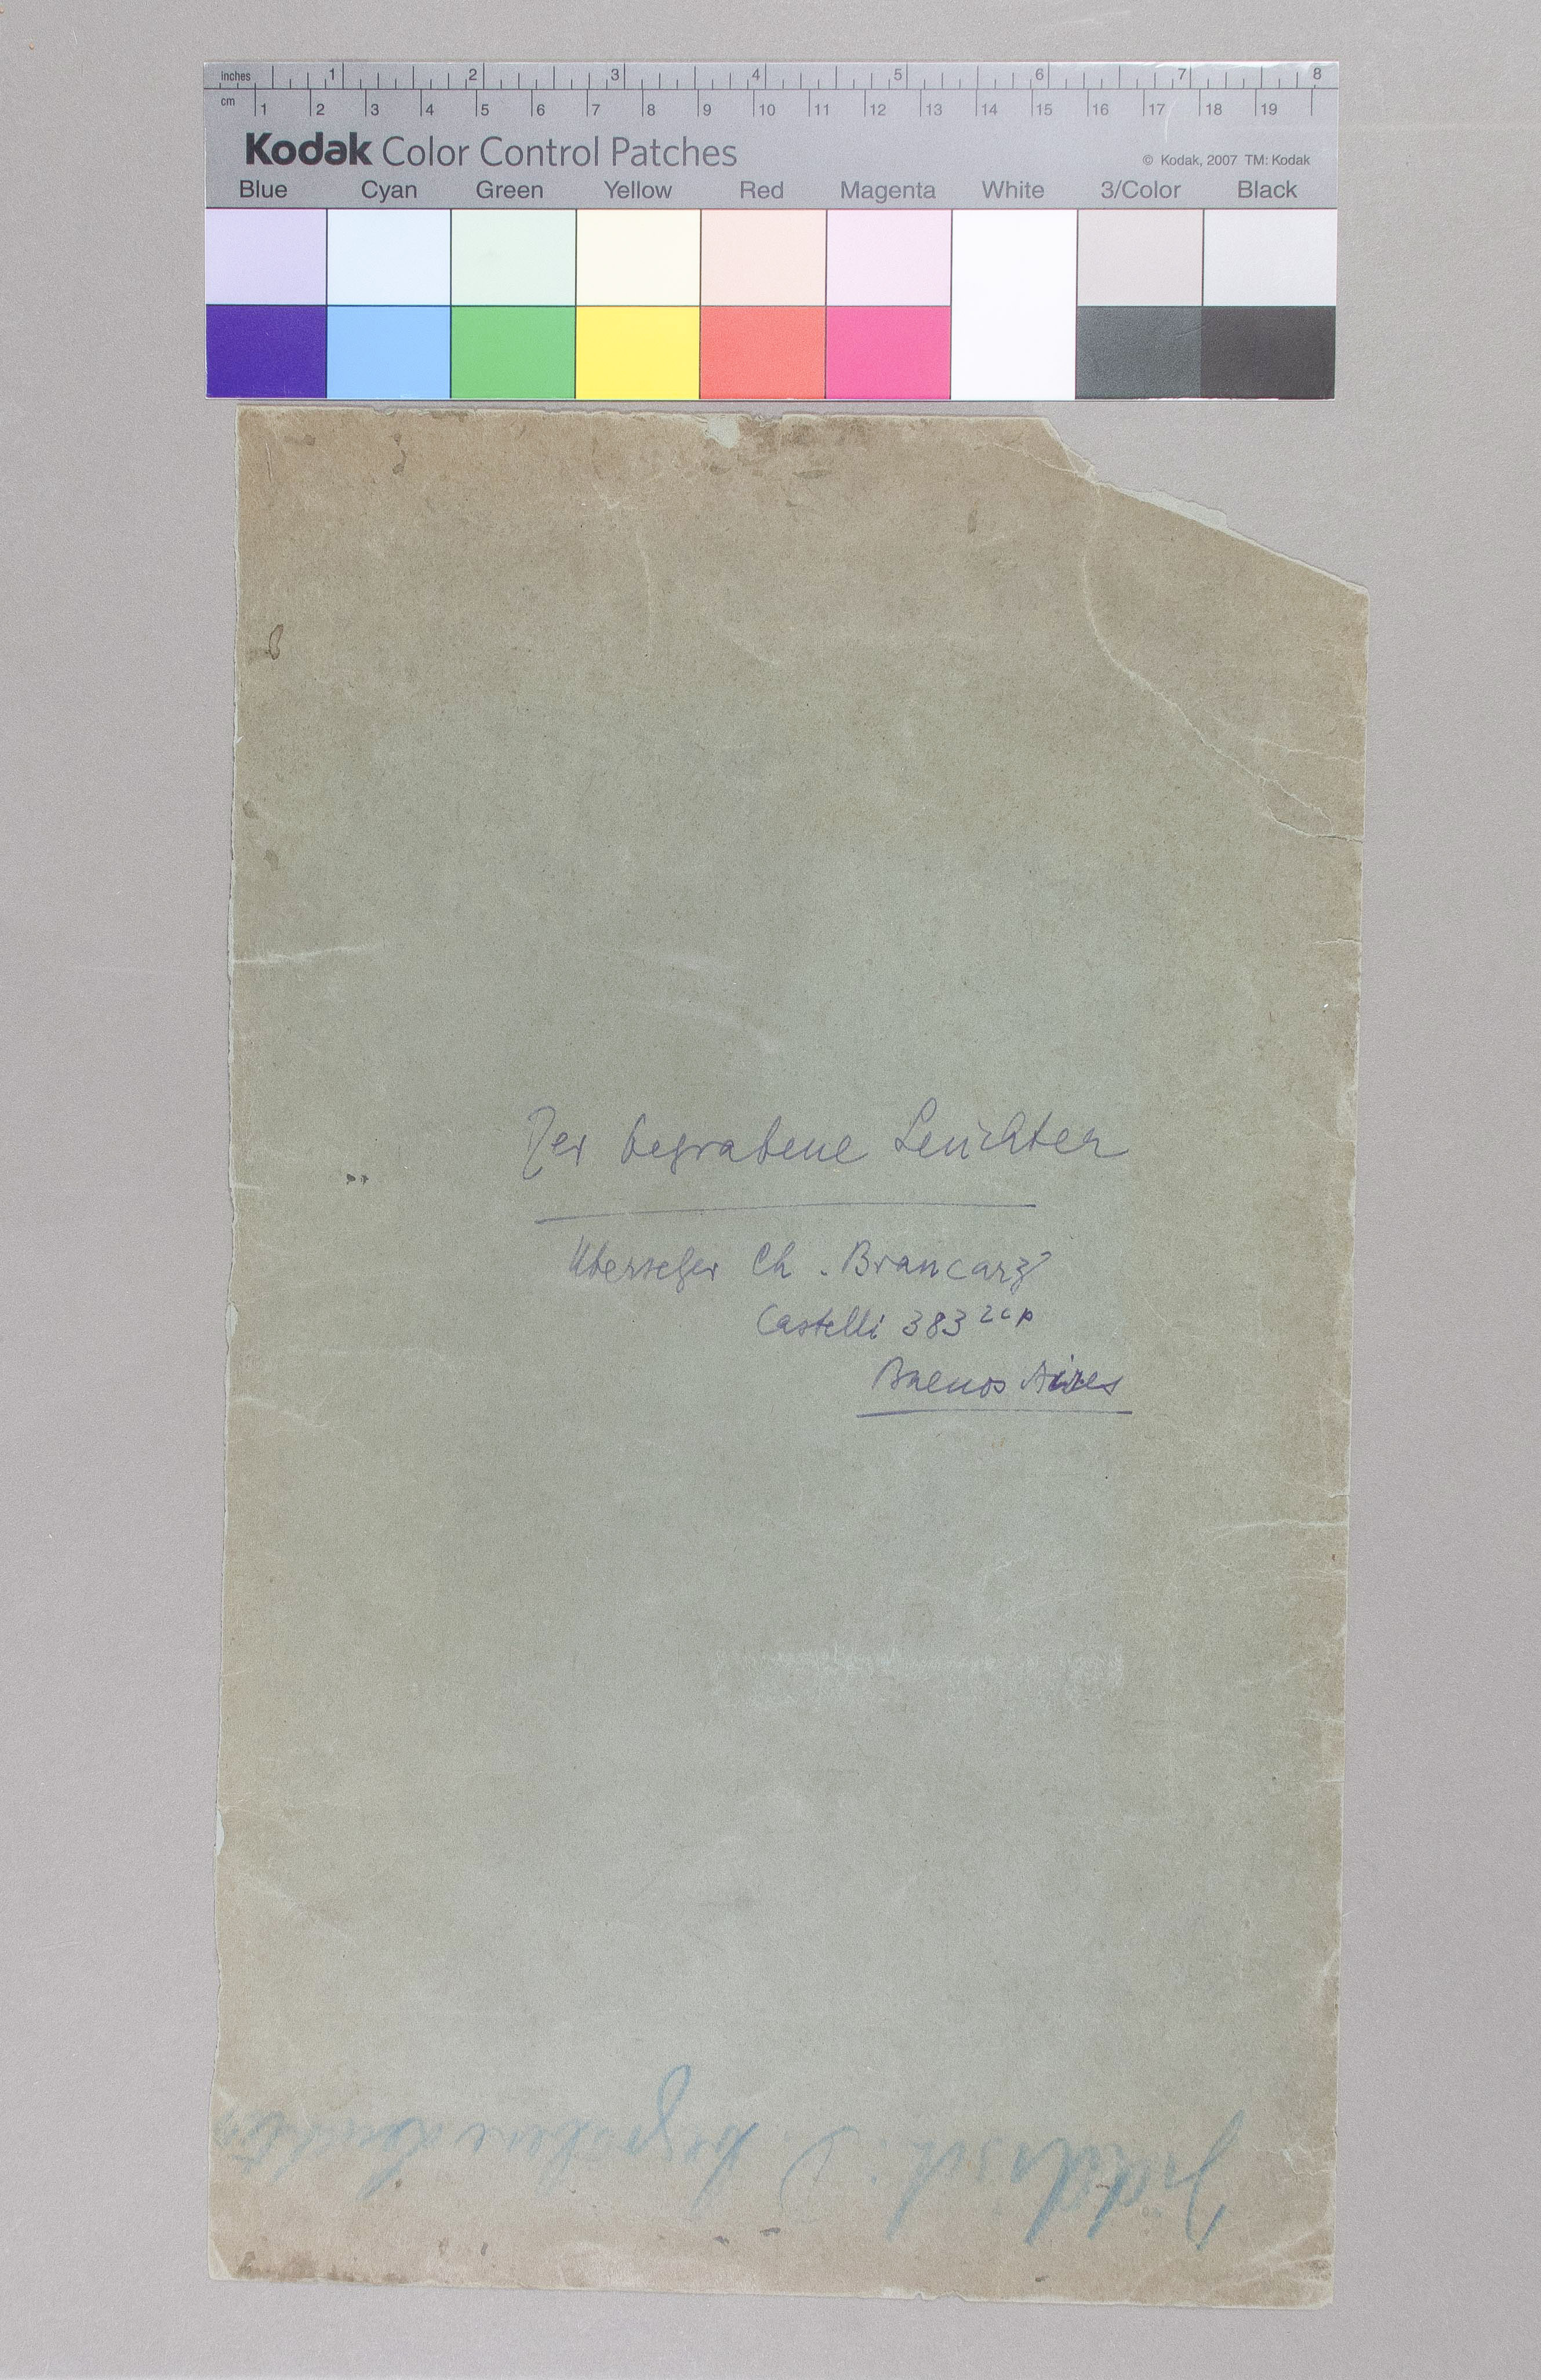 inches 1 2 3 4 5 6 7 8
cm 1 2 3 4 5 6 7 8 9 10 11 12 13 14 15 16 17 18 19
Kodak Color Control Patches
© Kodak, 2007 TM: Kodak
Blue Cyan Green Yellow Red Magenta White 3/Color Black
Der begrabene Leuchter
Übersetzer Ch. Brancarz
Castelli 383 2º p
Buenos Aires
Jiddisch: D. begrabene Leuchter